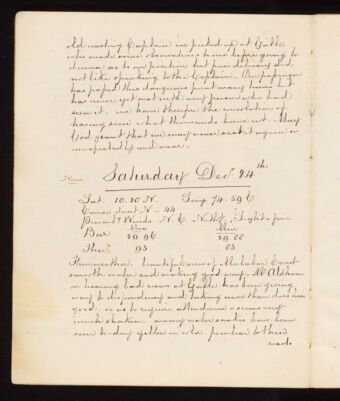 old coasting Captain we picked up at Galle
who made some observations some before going to
dinner as to our position but from delicacy did
not like speaking to the Captain. Our passenger
has passed this dangerous point many times but
has never yet met with any person who had
seen it. we have therefore the consolation of
having seen what thousands have not. May
God grant that we may never see it again or
unexpectedly and near.
Noon Saturday Decr. 24th
Lat. 10.30 N. Long 74.59 E
Error dant N - 44
Prevailg Winds N. E. Light fine
Bar 29.96 29.88
Ther 93 83
Fine weather. beautiful views of Malabar Coast
smooth water and making good way. Mr
on hearing bad news at Galle has been giving
way to despondency and taking more than does him
good; so as to require attendance & seems very
much shaken. many water snakes have been
seen to-day yellow in color peculiar to these
coast.